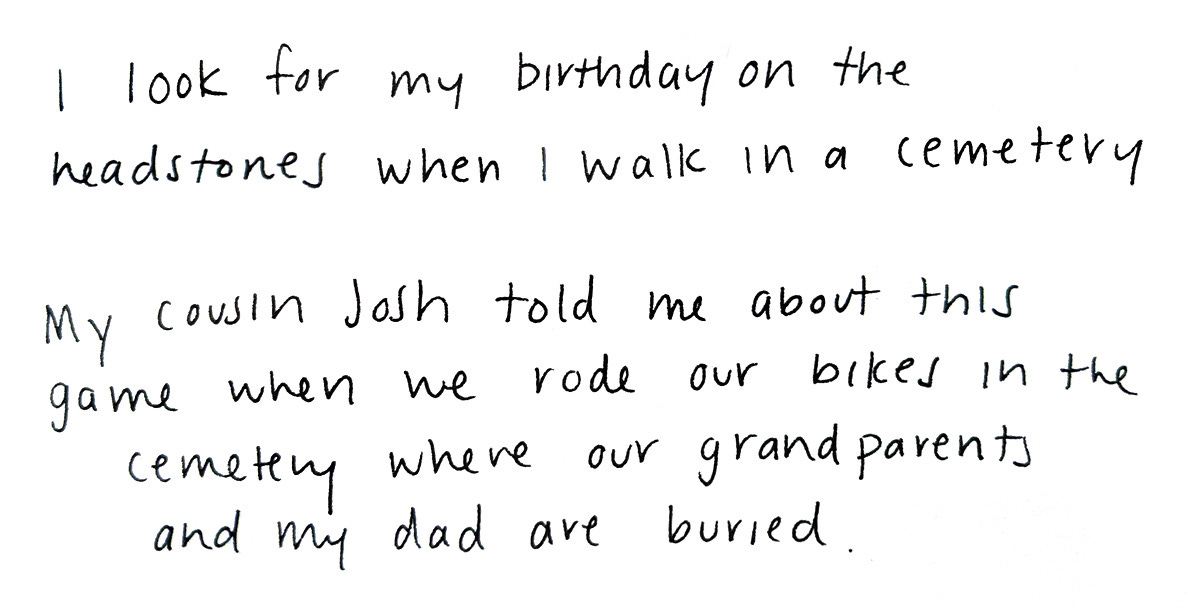 I look for my birthday on the
headstones when I walk in a cemetery
My cousin Josh told me about this
game when we rode our bikes in the
cemetery where our grandparents
and my dad are buried.